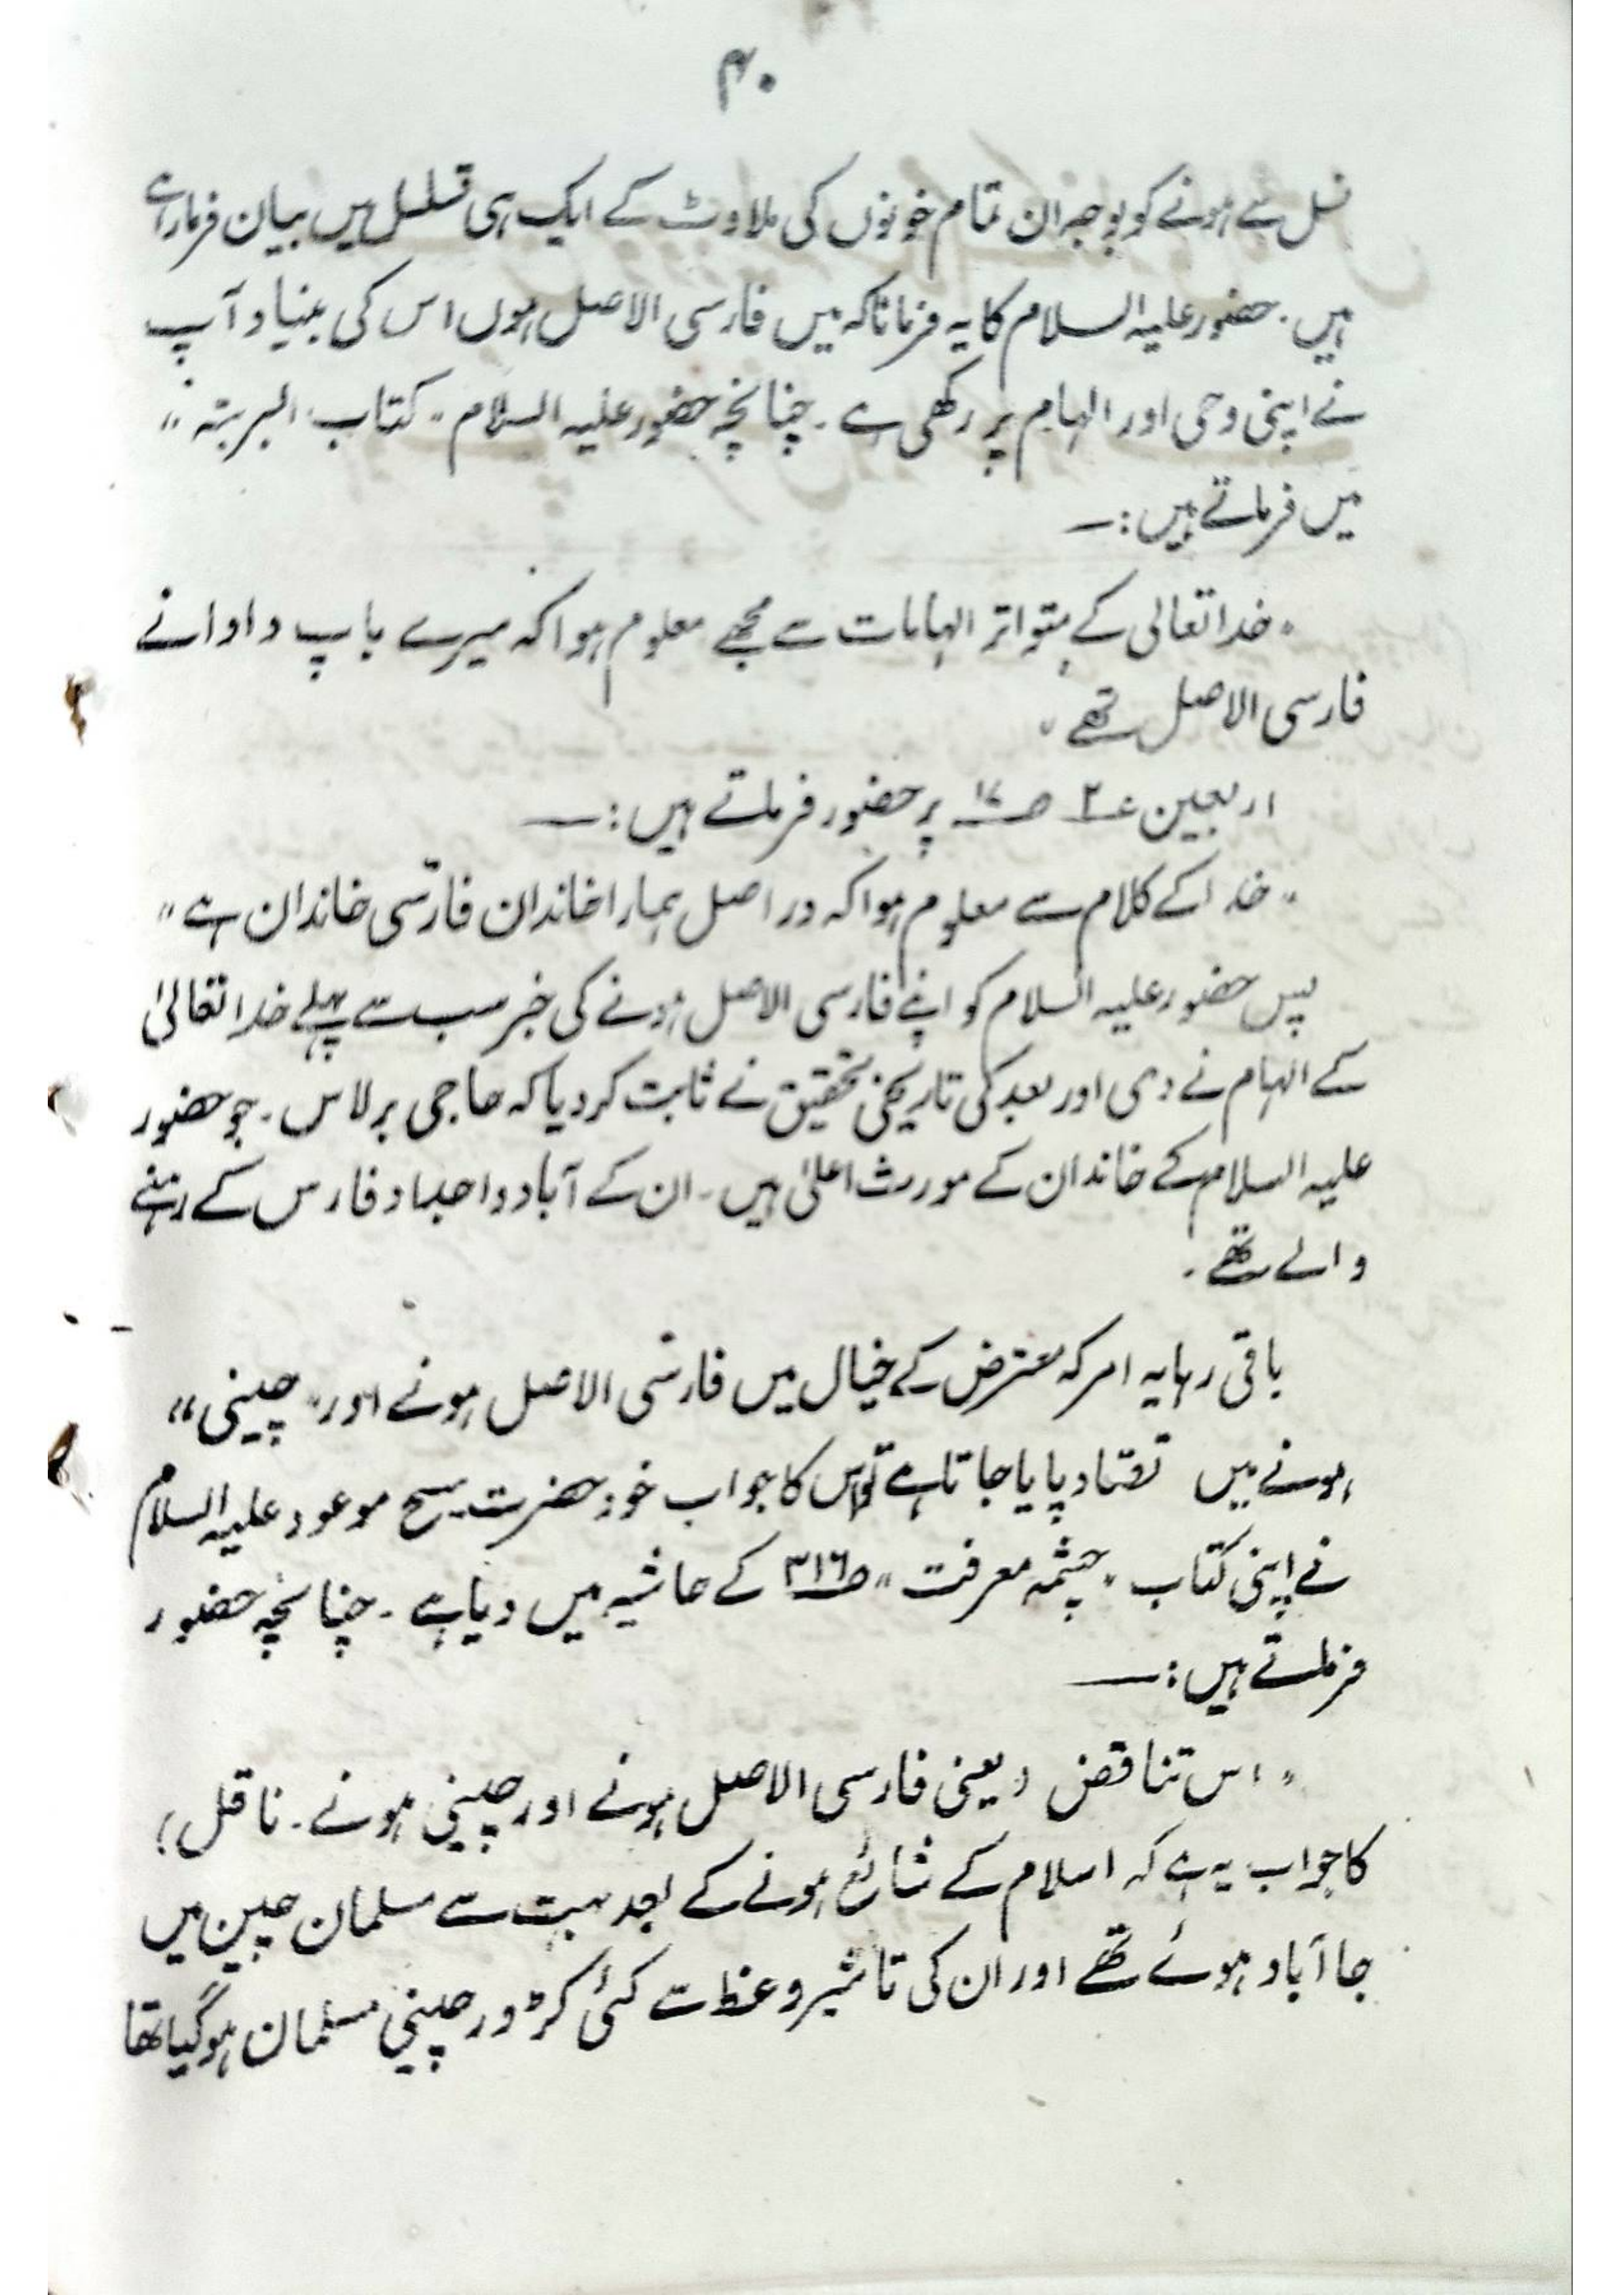 ۴۰
نسل سے ہونے کو بوجہ ان تمام خونوں کی ملاوٹ کے ایک ہی تسلسل میں بیان فرما رہے
ہیں۔ حضور علیہ السلام کا یہ فرمانا کہ میں فارسی الاصل ہوں اس کی بنیاد آپ
نے اپنی وحی اور الہام پر رکھی ہے۔ چنانچہ حضور علیہ السلام "کتاب البریّہ"
میں فرماتے ہیں:۔
"خدا تعالی کے متواتر الہامات سے مجھے معلوم ہوا کہ میرے باپ دادانے
فارسی الاصل تھے"
اربعین ۲ ص۱۷ پر حضور فرماتے ہیں:۔
"خدا کے کلام سے معلوم ہوا کہ دراصل ہمارا خاندان فارسی خاندان ہے"
پس حضور علیہ السلام کو اپنے فارسی الاصل ہونے کی خبر سب سے پہلے خدا تعالیٰ
کے الہام نے دی اور بعد کی تاریخی تحقیق نے ثابت کر دیا کہ حاجی برلاس۔ جو حضور
علیہ السلام کے خاندان کے مورث اعلیٰ ہیں۔ ان کے آباد واجداد فارس کے رہنے
والے تھے۔
باقی رہا یہ امر کہ معترض کے خیال میں فارسی الاصل ہونے اور "چینی"
ہونے میں تضاد پایا جاتا ہے تو اس کا جواب خود حضرت مسیح موعود علیہ السلام
نے اپنی کتاب "چشمہ معرفت" ص۳۱۶ کے حاشیہ میں دیا ہے۔ چنانچہ حضور
فرماتے ہیں:۔
"اس تناقض (یعنی فارسی الاصل ہونے اور چینی ہونے۔ ناقل)
کا جواب یہ ہے کہ اسلام کے شائع ہونے کے بعد بہت سے مسلمان چین میں
جا آباد ہوئے تھے اور ان کی تاثیر وعظ سے کئی کڑور چینی مسلمان ہوگیا تھا